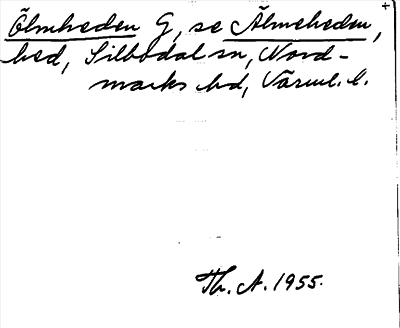 Ölmheden G, se Älmeheden,
hed, Silbodal sn, Nord-
marks hd, Värml. l.
Th. A. 1955.